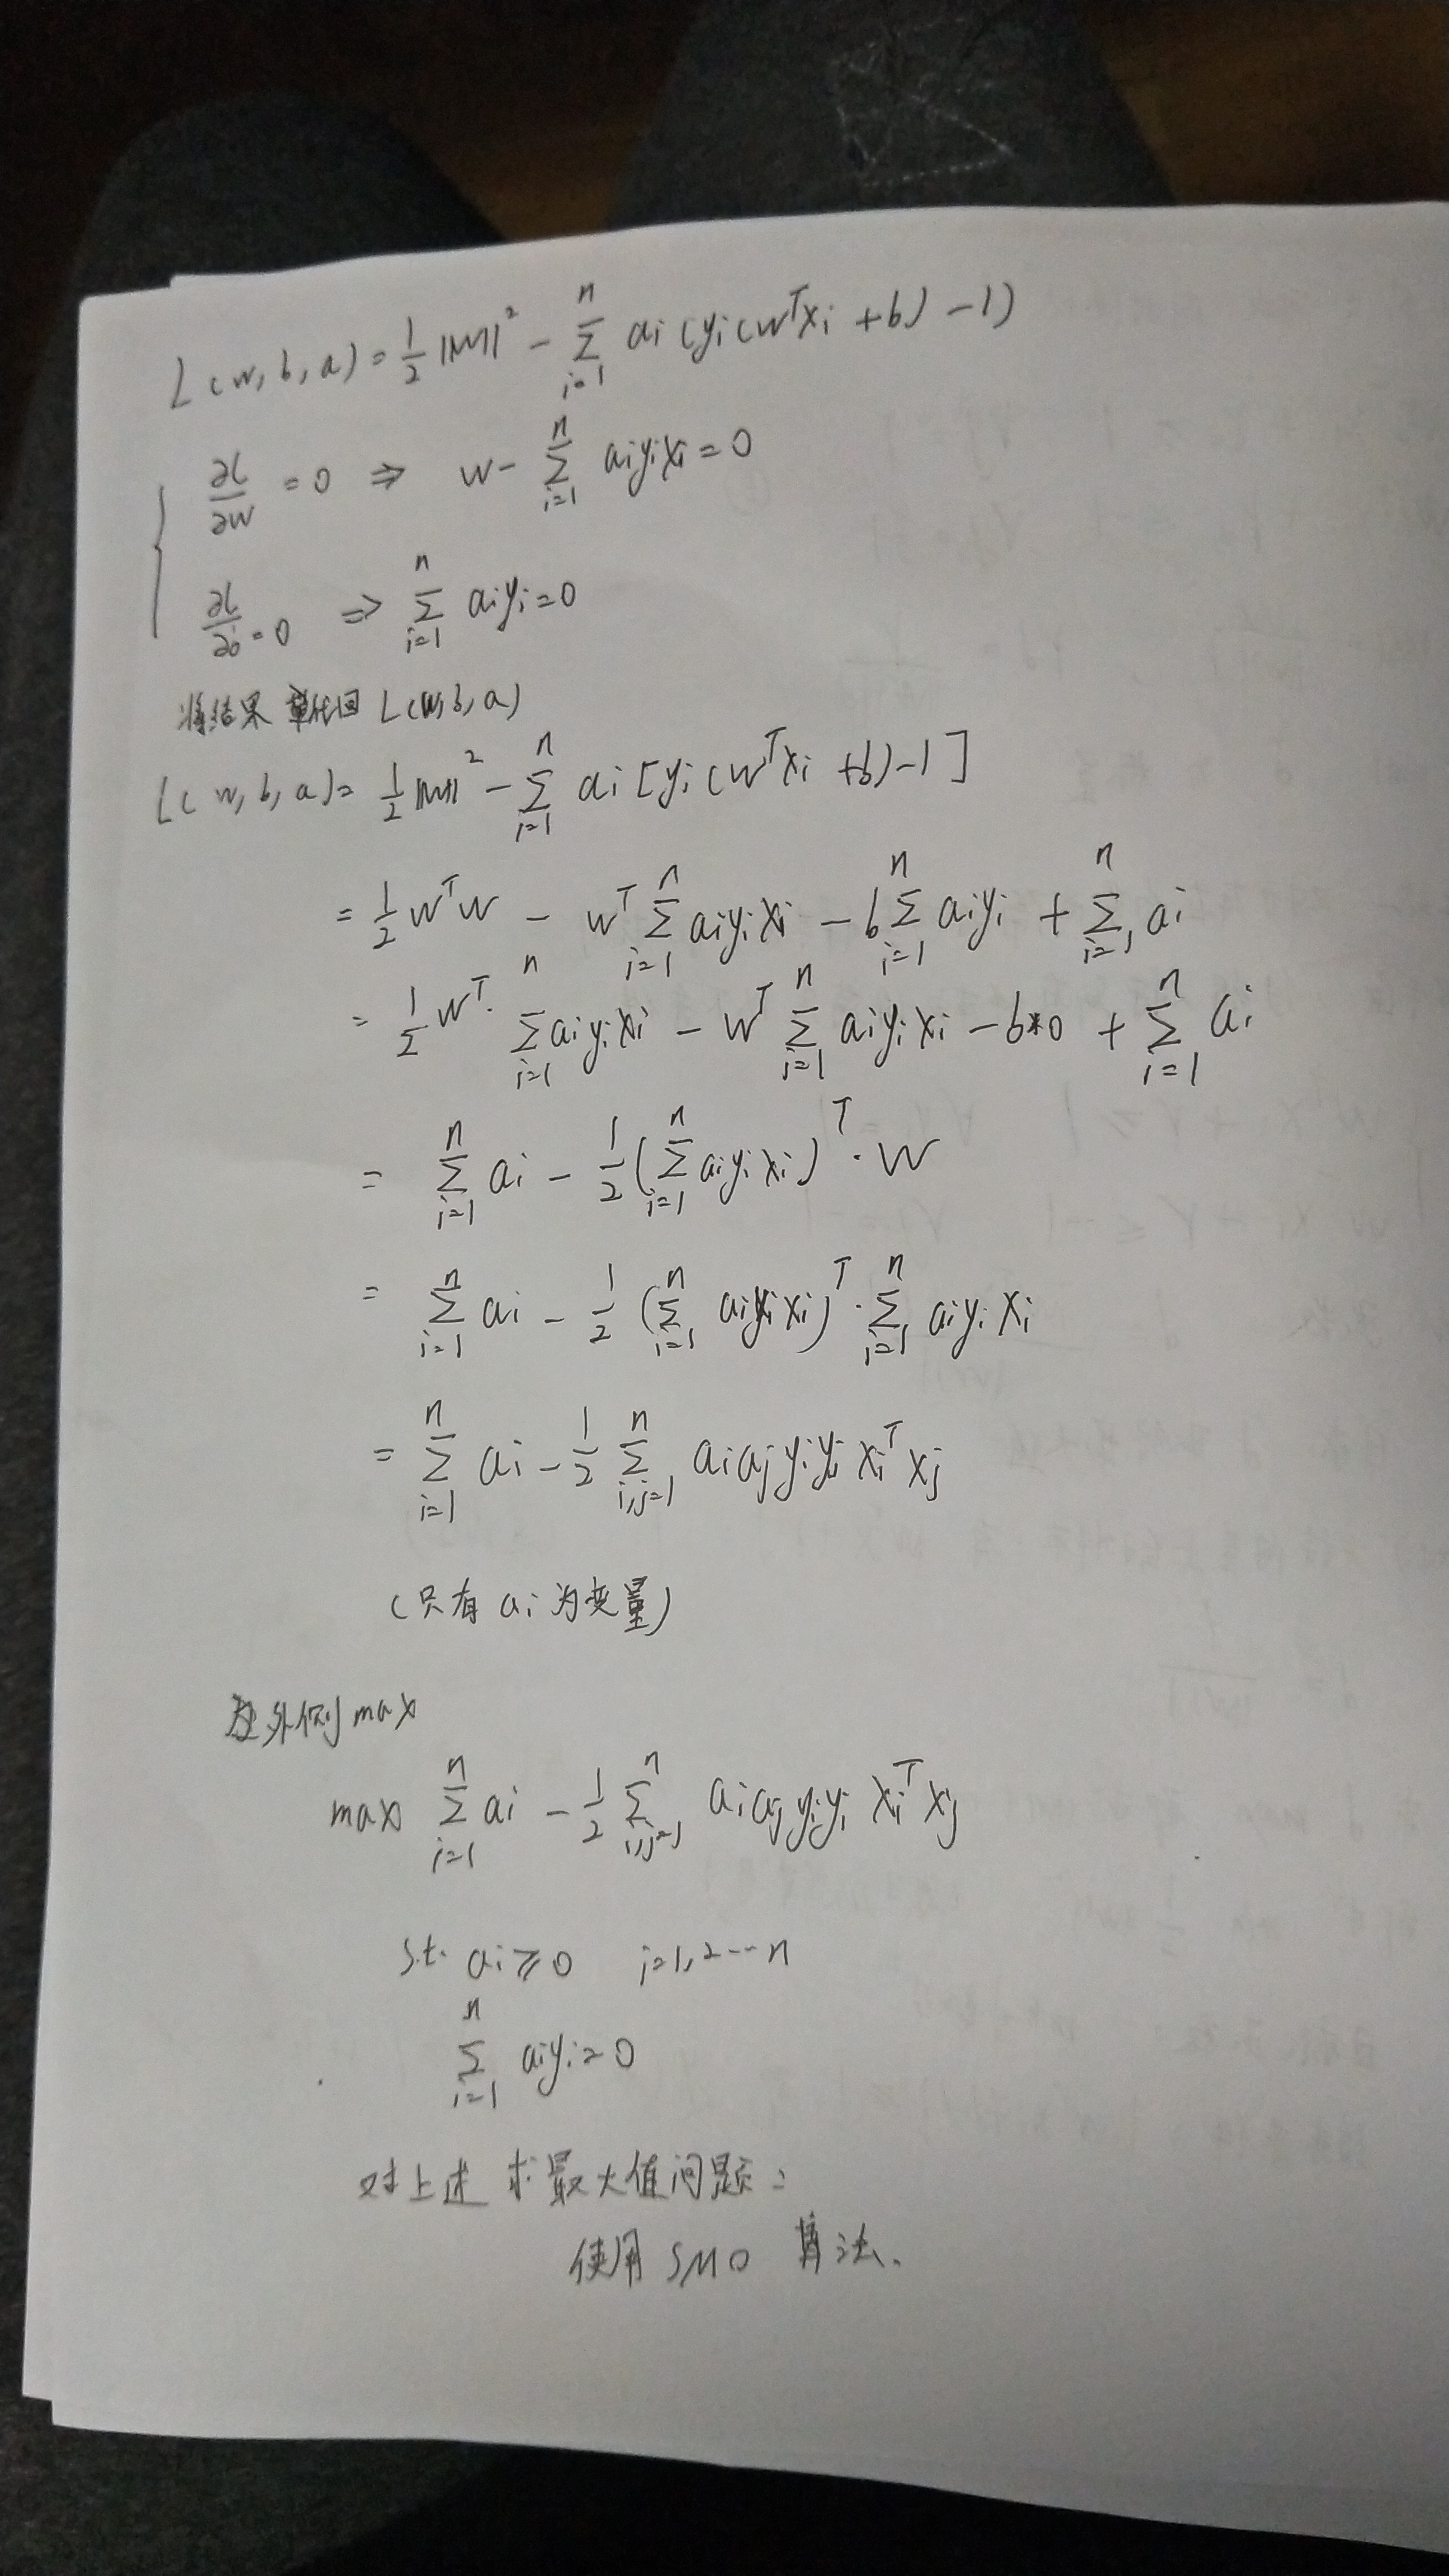 L(w, b, a) = 1/2 ||w||² - Σ_{i=1}^{n} ai (yi (wᵀxi + b) - 1)
∂L/∂w = 0 ⇒ w - Σ_{i=1}^{n} aiyixi = 0
∂L/∂b = 0 ⇒ Σ_{i=1}^{n} aiyi = 0
将结果 代回 L(w, b, a)
L(w, b, a) = 1/2 ||w||² - Σ_{i=1}^{n} ai [yi (wᵀxi + b) - 1]
= 1/2 wᵀw - wᵀ Σ_{i=1}^{n} aiyixi - b Σ_{i=1}^{n} aiyi + Σ_{i=1}^{n} ai
= 1/2 wᵀ · Σ_{i=1}^{n} aiyixi - wᵀ Σ_{i=1}^{n} aiyixi - b*0 + Σ_{i=1}^{n} ai
= Σ_{i=1}^{n} ai - 1/2 (Σ_{i=1}^{n} aiyixi)ᵀ · w
= Σ_{i=1}^{n} ai - 1/2 (Σ_{i=1}^{n} aiyixi)ᵀ · Σ_{i=1}^{n} aiyixi
= Σ_{i=1}^{n} ai - 1/2 Σ_{i,j=1}^{n} aiajyiyj xiᵀxj
(只有 ai 为变量)
外侧 max
max Σ_{i=1}^{n} ai - 1/2 Σ_{i,j=1}^{n} aiajyiyj xiᵀxj
s.t. ai ≥ 0 i=1,2…n
Σ_{i=1}^{n} aiyi = 0
对上述 求最大值问题:
使用 SMO 算法.